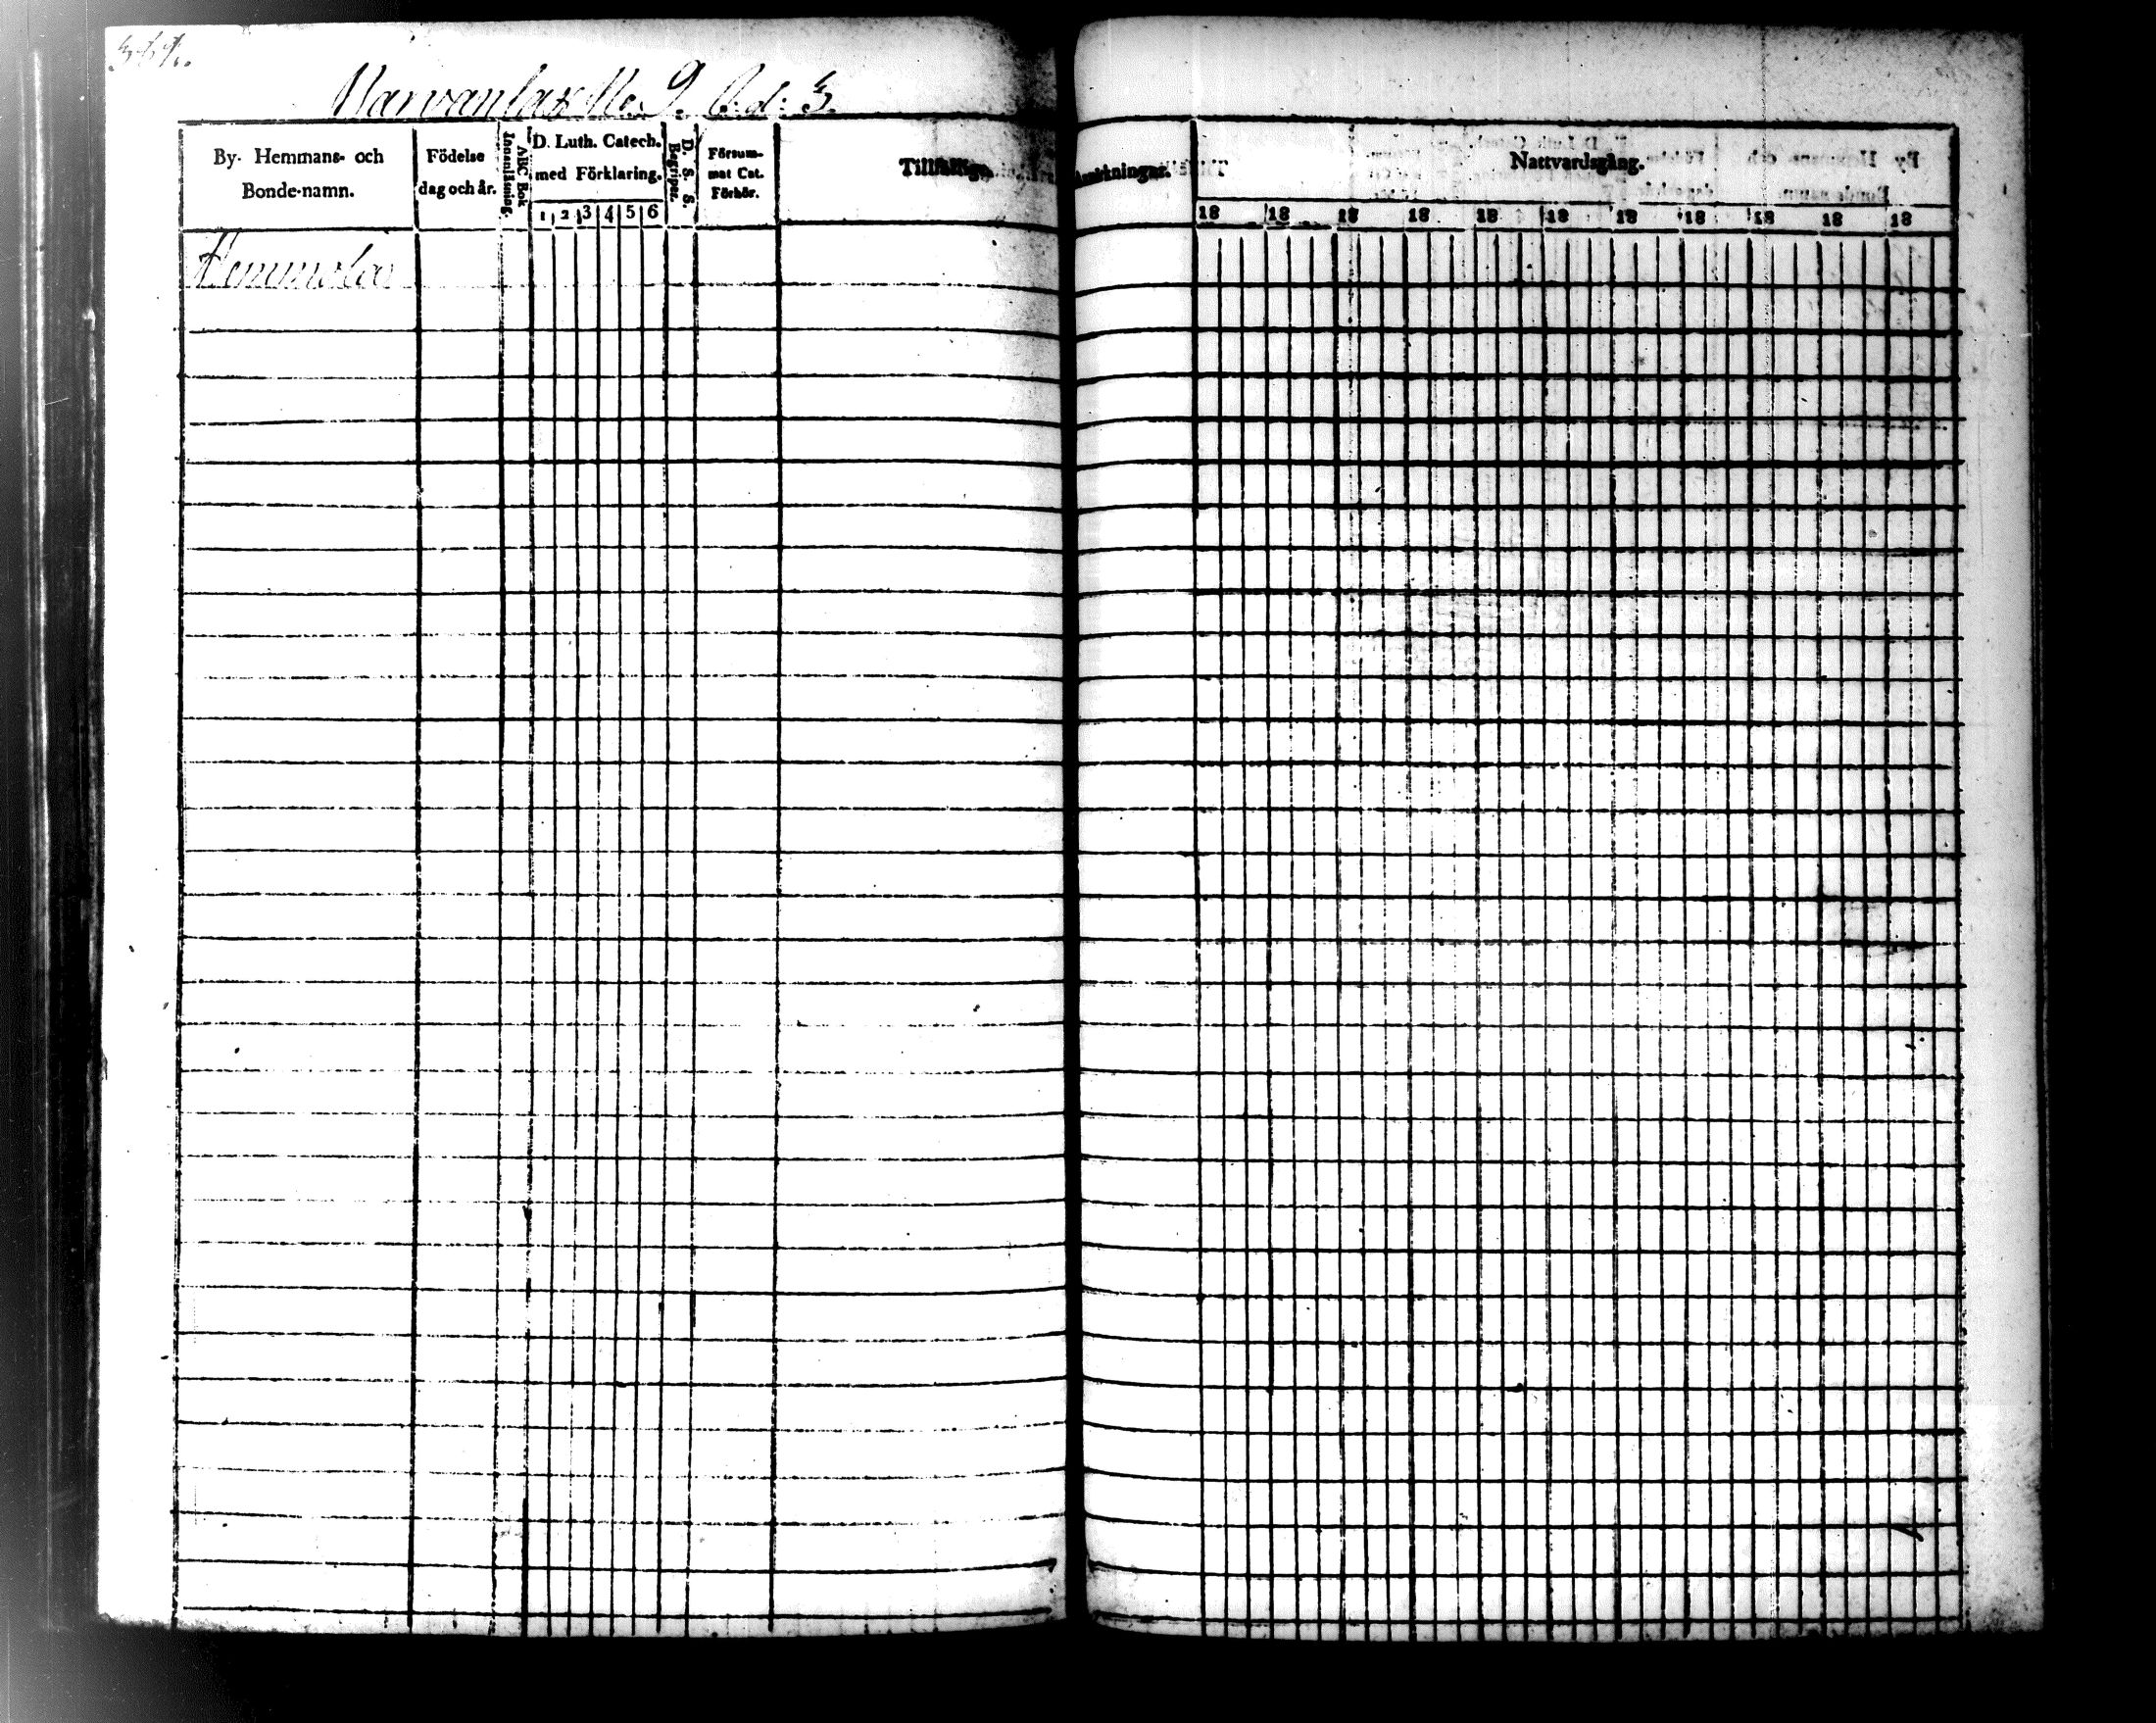 361.
Warvanlax No. 9. L. d. 3.
By- Hemmans- och
Bonde-namn.
Födelse
dag och år.
ABC Bok
Innanläsning.
D. Luth. Catech.
med Förklaring.
1 2 3 4 5 6
D. S. S.
Begriper.
Försum-
mat Cat.
Förhör.
Tillfällige
Anmärkningar.
Nattvardsgång.
18 18 18 18 18 18 18 18 18 18 18
Hemmola